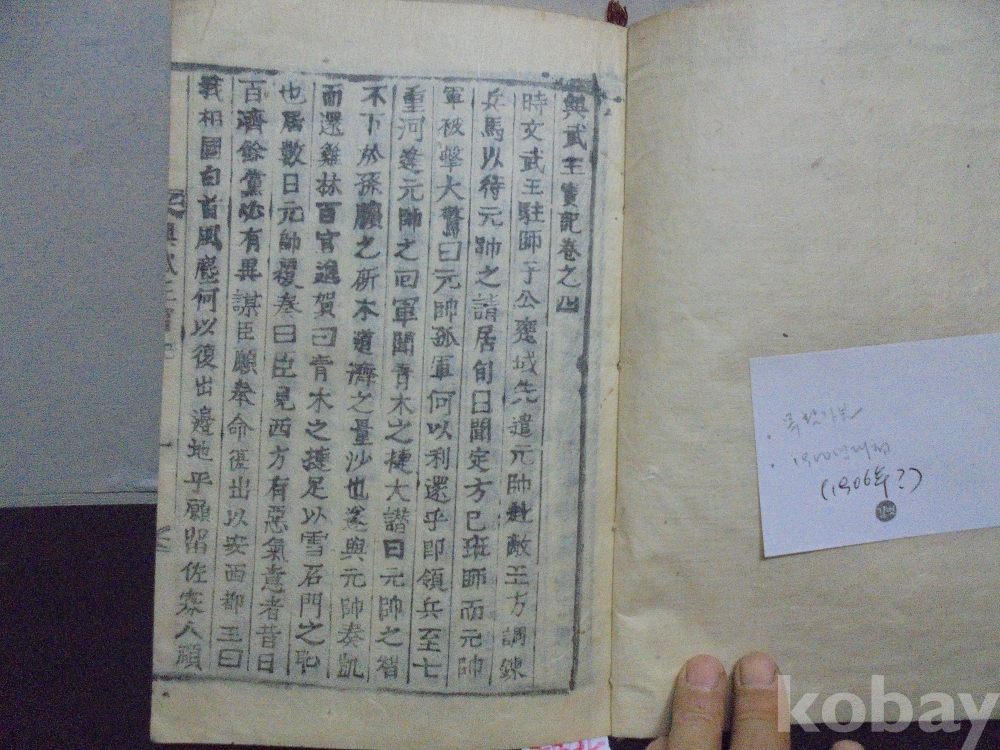 興武王實記卷之四
時文武王駐師于公瓮城先遣元帥赴敵王方調鍊
兵馬以待元帥之請居旬日聞定方已班師而元帥
軍被擊大驚曰元帥孤軍何以利還乎即領兵至七
重河逢元帥之回軍聞青木之捷大讃曰元帥之智
不下於孫臏之斫木道濟之量沙也遂與元帥奏凱
而還雞林百官進賀曰青木之捷足以雪石門之恥
也居數日元帥覆奏曰臣見西方有惡氣意者昔日
百濟餘黨必有異謀臣願奉命復出以安西都王曰
我相國白首風塵何以復出邊地乎願留佐寡人頋
1900년대
(1906年?)
kobay